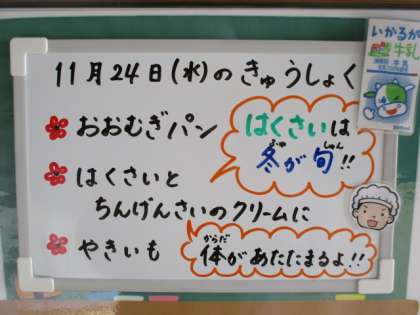 11月24日(水)のきゅうしょく
おおむぎパン
はくさいと
ちんげんさいのクリームに
やきいも
はくさいは
冬が旬!!
ふゆ しゅん
体があたたまるよ!!
からだ
いかるが
牛乳